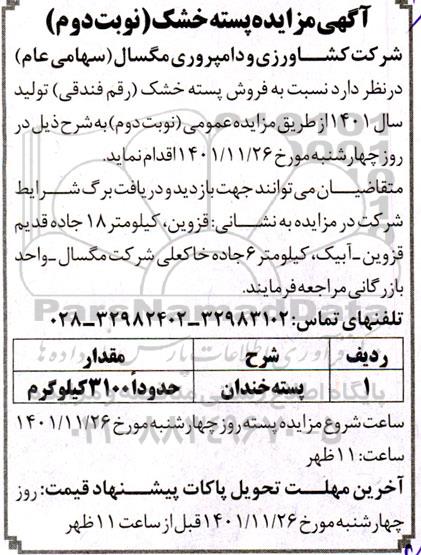 آگهی مزایده پسته خشک (نوبت دوم)
شرکت کشاورزی و دامپروری مگسال (سهامی عام)
در نظر دارد نسبت به فروش پسته خشک (رقم فندقی) تولید
سال ۱۴۰۱ از طریق مزایده عمومی (نوبت دوم) به شرح ذیل در
روز چهارشنبه مورخ ۱۴۰۱/۱۱/۲۶ اقدام نماید.
متقاضیان می توانند جهت بازدید و دریافت برگ شرایط
شرکت در مزایده به نشانی: قزوین، کیلومتر ۱۸ جاده قدیم
قزوین - آبیک، کیلومتر ۶ جاده خاکعلی شرکت مگسال - واحد
بازرگانی مراجعه فرمایند.
تلفنهای تماس: ۳۲۹۸۳۱۰۲-۳۲۹۸۲۴۰۲-۰۲۸
ردیف شرح مقدار
۱ پسته خندان حدوداً ۳۱۰۰ کیلوگرم
ساعت شروع مزایده پسته روز چهارشنبه مورخ ۱۴۰۱/۱۱/۲۶
ساعت: ۱۱ ظهر
آخرین مهلت تحویل پاکات پیشنهاد قیمت: روز
چهارشنبه مورخ ۱۴۰۱/۱۱/۲۶ قبل از ساعت ۱۱ ظهر
ParsNamadData
۰۲۱-۸۸۳۴۹۶۷۰-۵